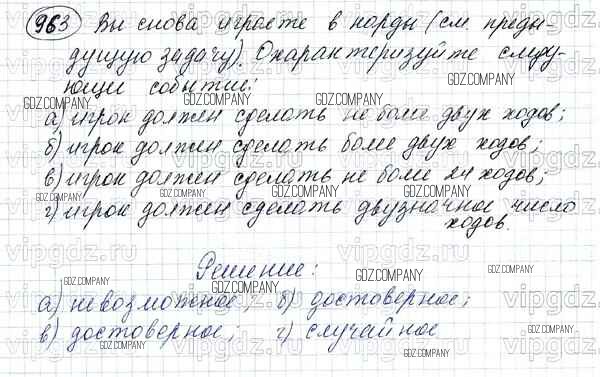 963 Вы снова играете в нарды (см. преды-
дущую задачу). Охарактеризуйте следу-
ющие события:
а) игрок должен сделать не более двух ходов;
б) игрок должен сделать более двух ходов;
в) игрок должен сделать не более 24 ходов;
г) игрок должен сделать двузначное число
ходов.
Решение:
а) невозможное; б) достоверное;
в) достоверное; г) случайное
GDZ.COMPANY
vipgdz.ru